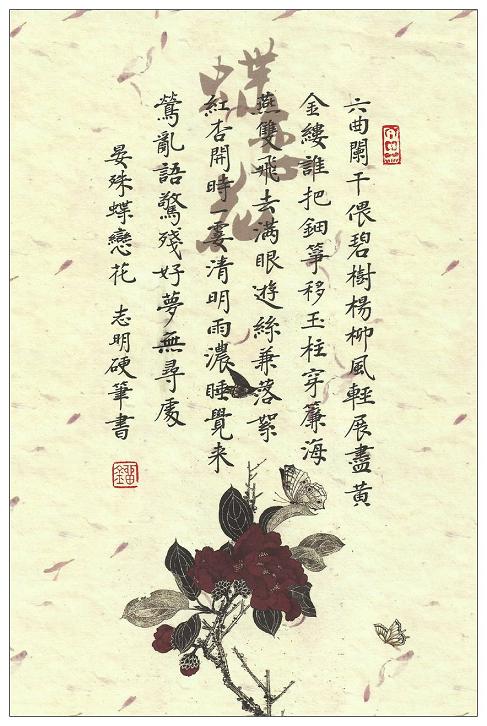 六曲闌干偎碧樹楊柳風輕展盡黄
金縷誰把鈿箏移玉柱穿簾海
燕雙飛去满眼遊絲兼落絮
紅杏開時一霎清明雨濃睡覺来
鶯亂語驚殘好夢無尋處
晏殊蝶戀花 志明硬筆書
蝶恋花